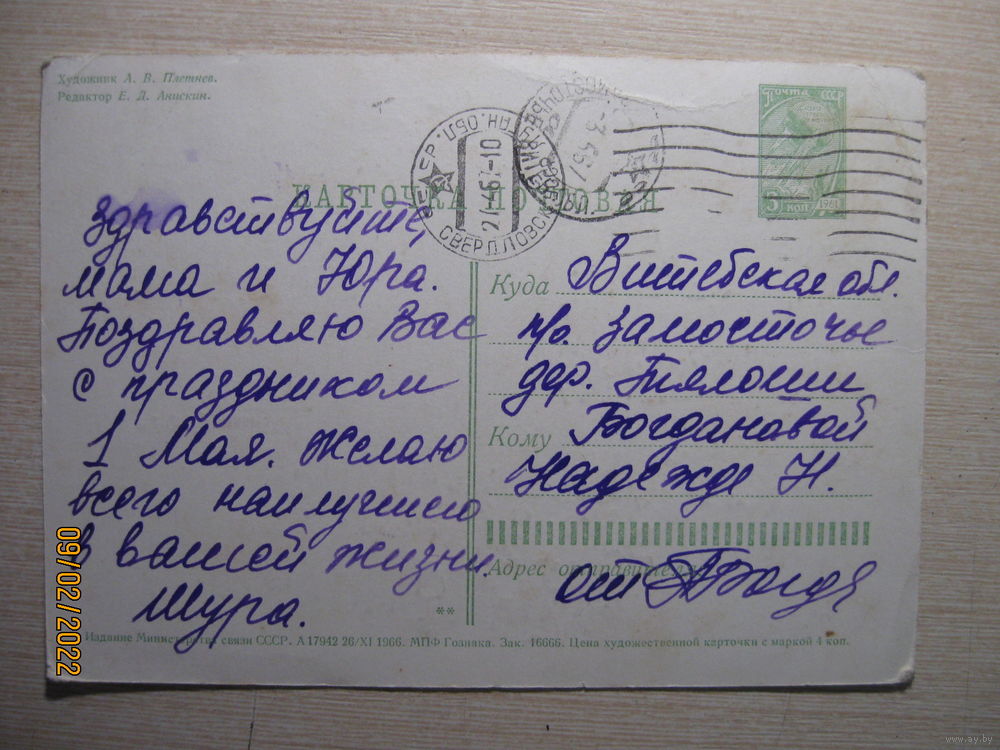 Художник А. В. Плетнев.
Редактор Е. Д. Анискин.
ПОЧТА СССР
3 КОП 1961
СВЕРДЛОВСК
27-4 67-10
КАРТОЧКА ПОЧТОВАЯ
Здравствуйте,
мама и Юра.
Поздравляю Вас
с праздником
1 Мая. Желаю
всего наилучшего
в вашей жизни.
Шура.
**
Куда Витебская обл.
п/о. Замосточье
дер. Тялоши
Кому Богдановой
Надежде Н.
Адрес отправителя
от
Издание Министерства связи СССР. А 17942 26/XI 1966. МПФ Гознака. Зак. 16666. Цена художественной карточки с маркой 4 коп.
09/02/2022
www.ay.by